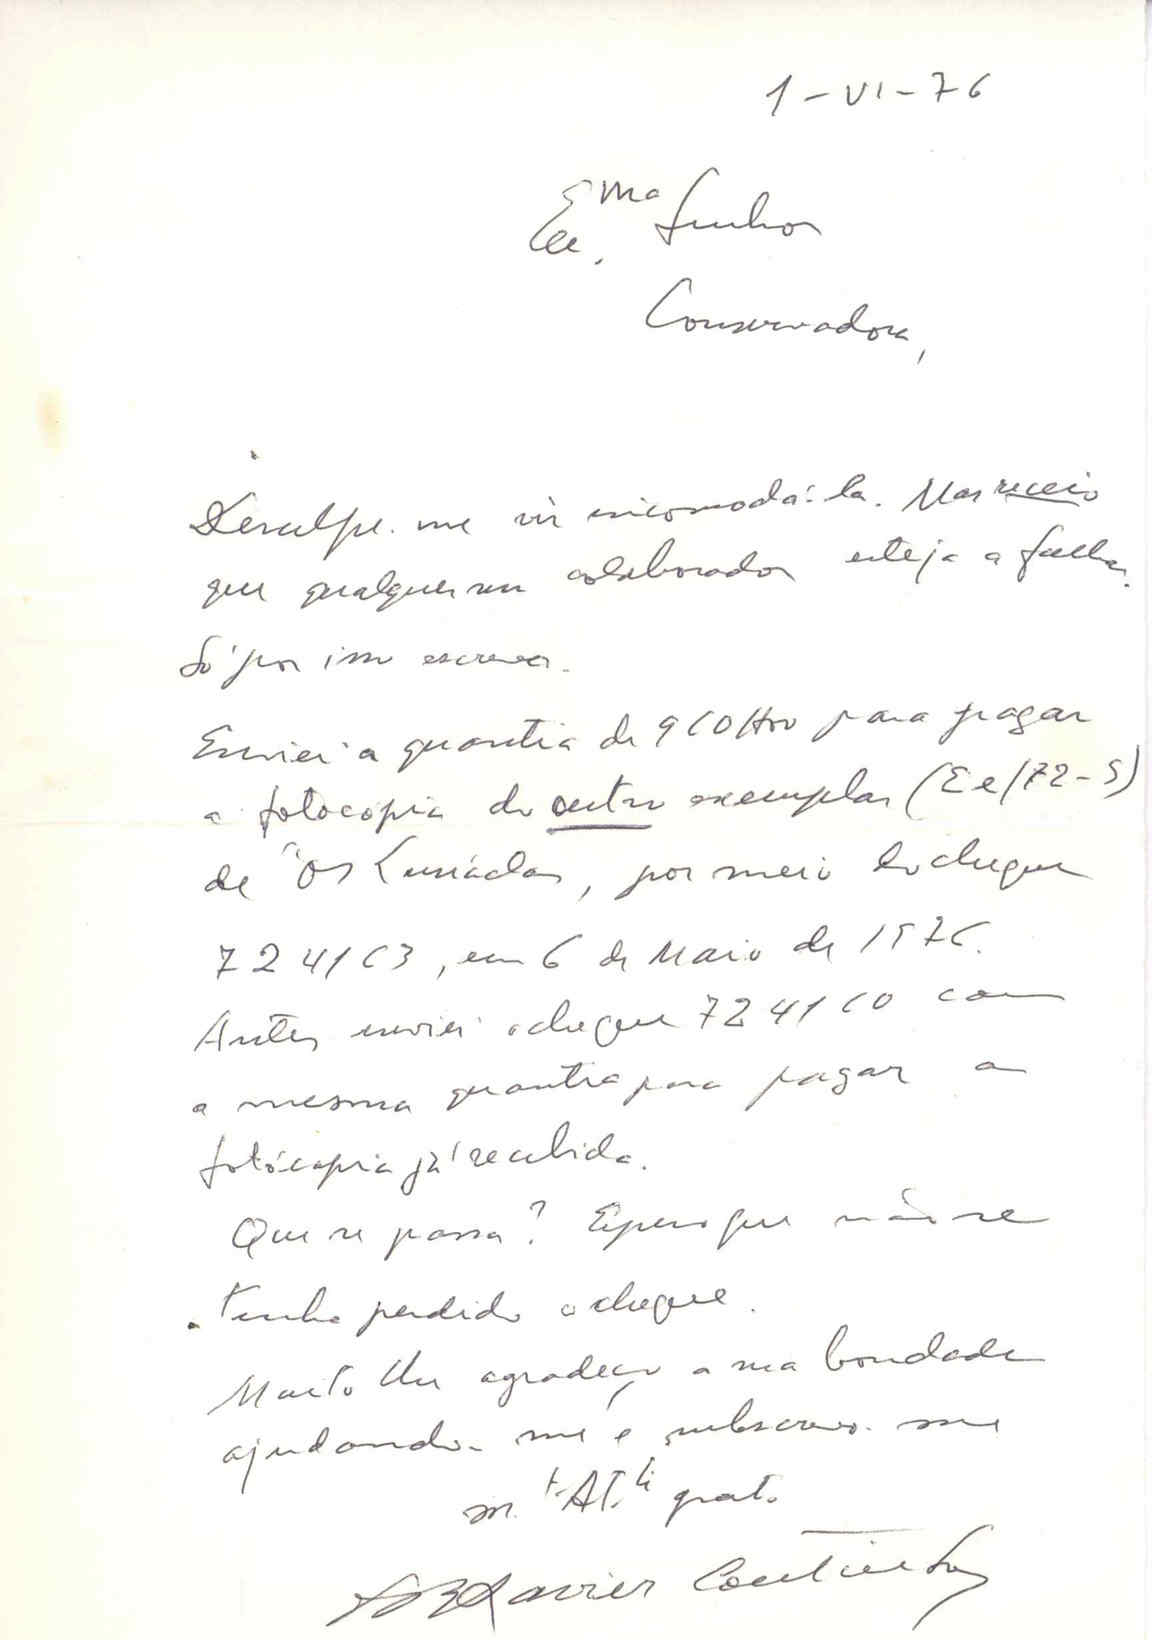 1-VI-76
Ex.ma Senhora
Conservadora,
Desculpe-me vir incomodá-la. Mas receio
que qualquer seu colaborador esteja a falhar.
Só por isso escrevo.
Enviei a quantia de para pagar
a fotocópia do outro exemplar
de "Os Lusíadas, por meio do cheque
724163, em 6 de Maio de 1976.
Antes enviei o cheque 724160 com
a mesma quantia para pagar a
fotócopia já recebida.
Que se passa? Espero que não se
tenha perdido o cheque.
Muito lhe agradeço a sua bondade
ajudando-me e subscrevo-me
grato
Xavier Coutinho